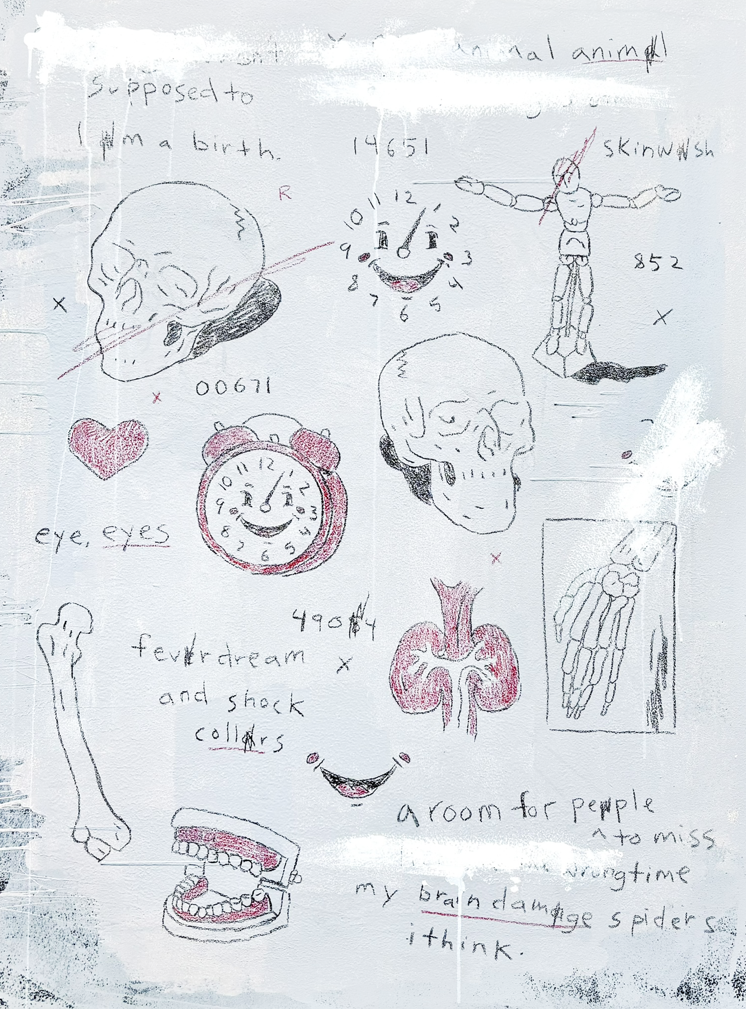 animal animal
supposed to
I am a birth.
14651
skinwash
R
12
11
1
10
2
9
3
8
4
7
5
6
852
x
x
x
00671
12
11
1
10
2
9
3
8
4
7
5
6
eye, eyes
x
fever dream
and shock
collars
x
a room for people
^ to miss
wrong time
my brain damage spiders
i think.